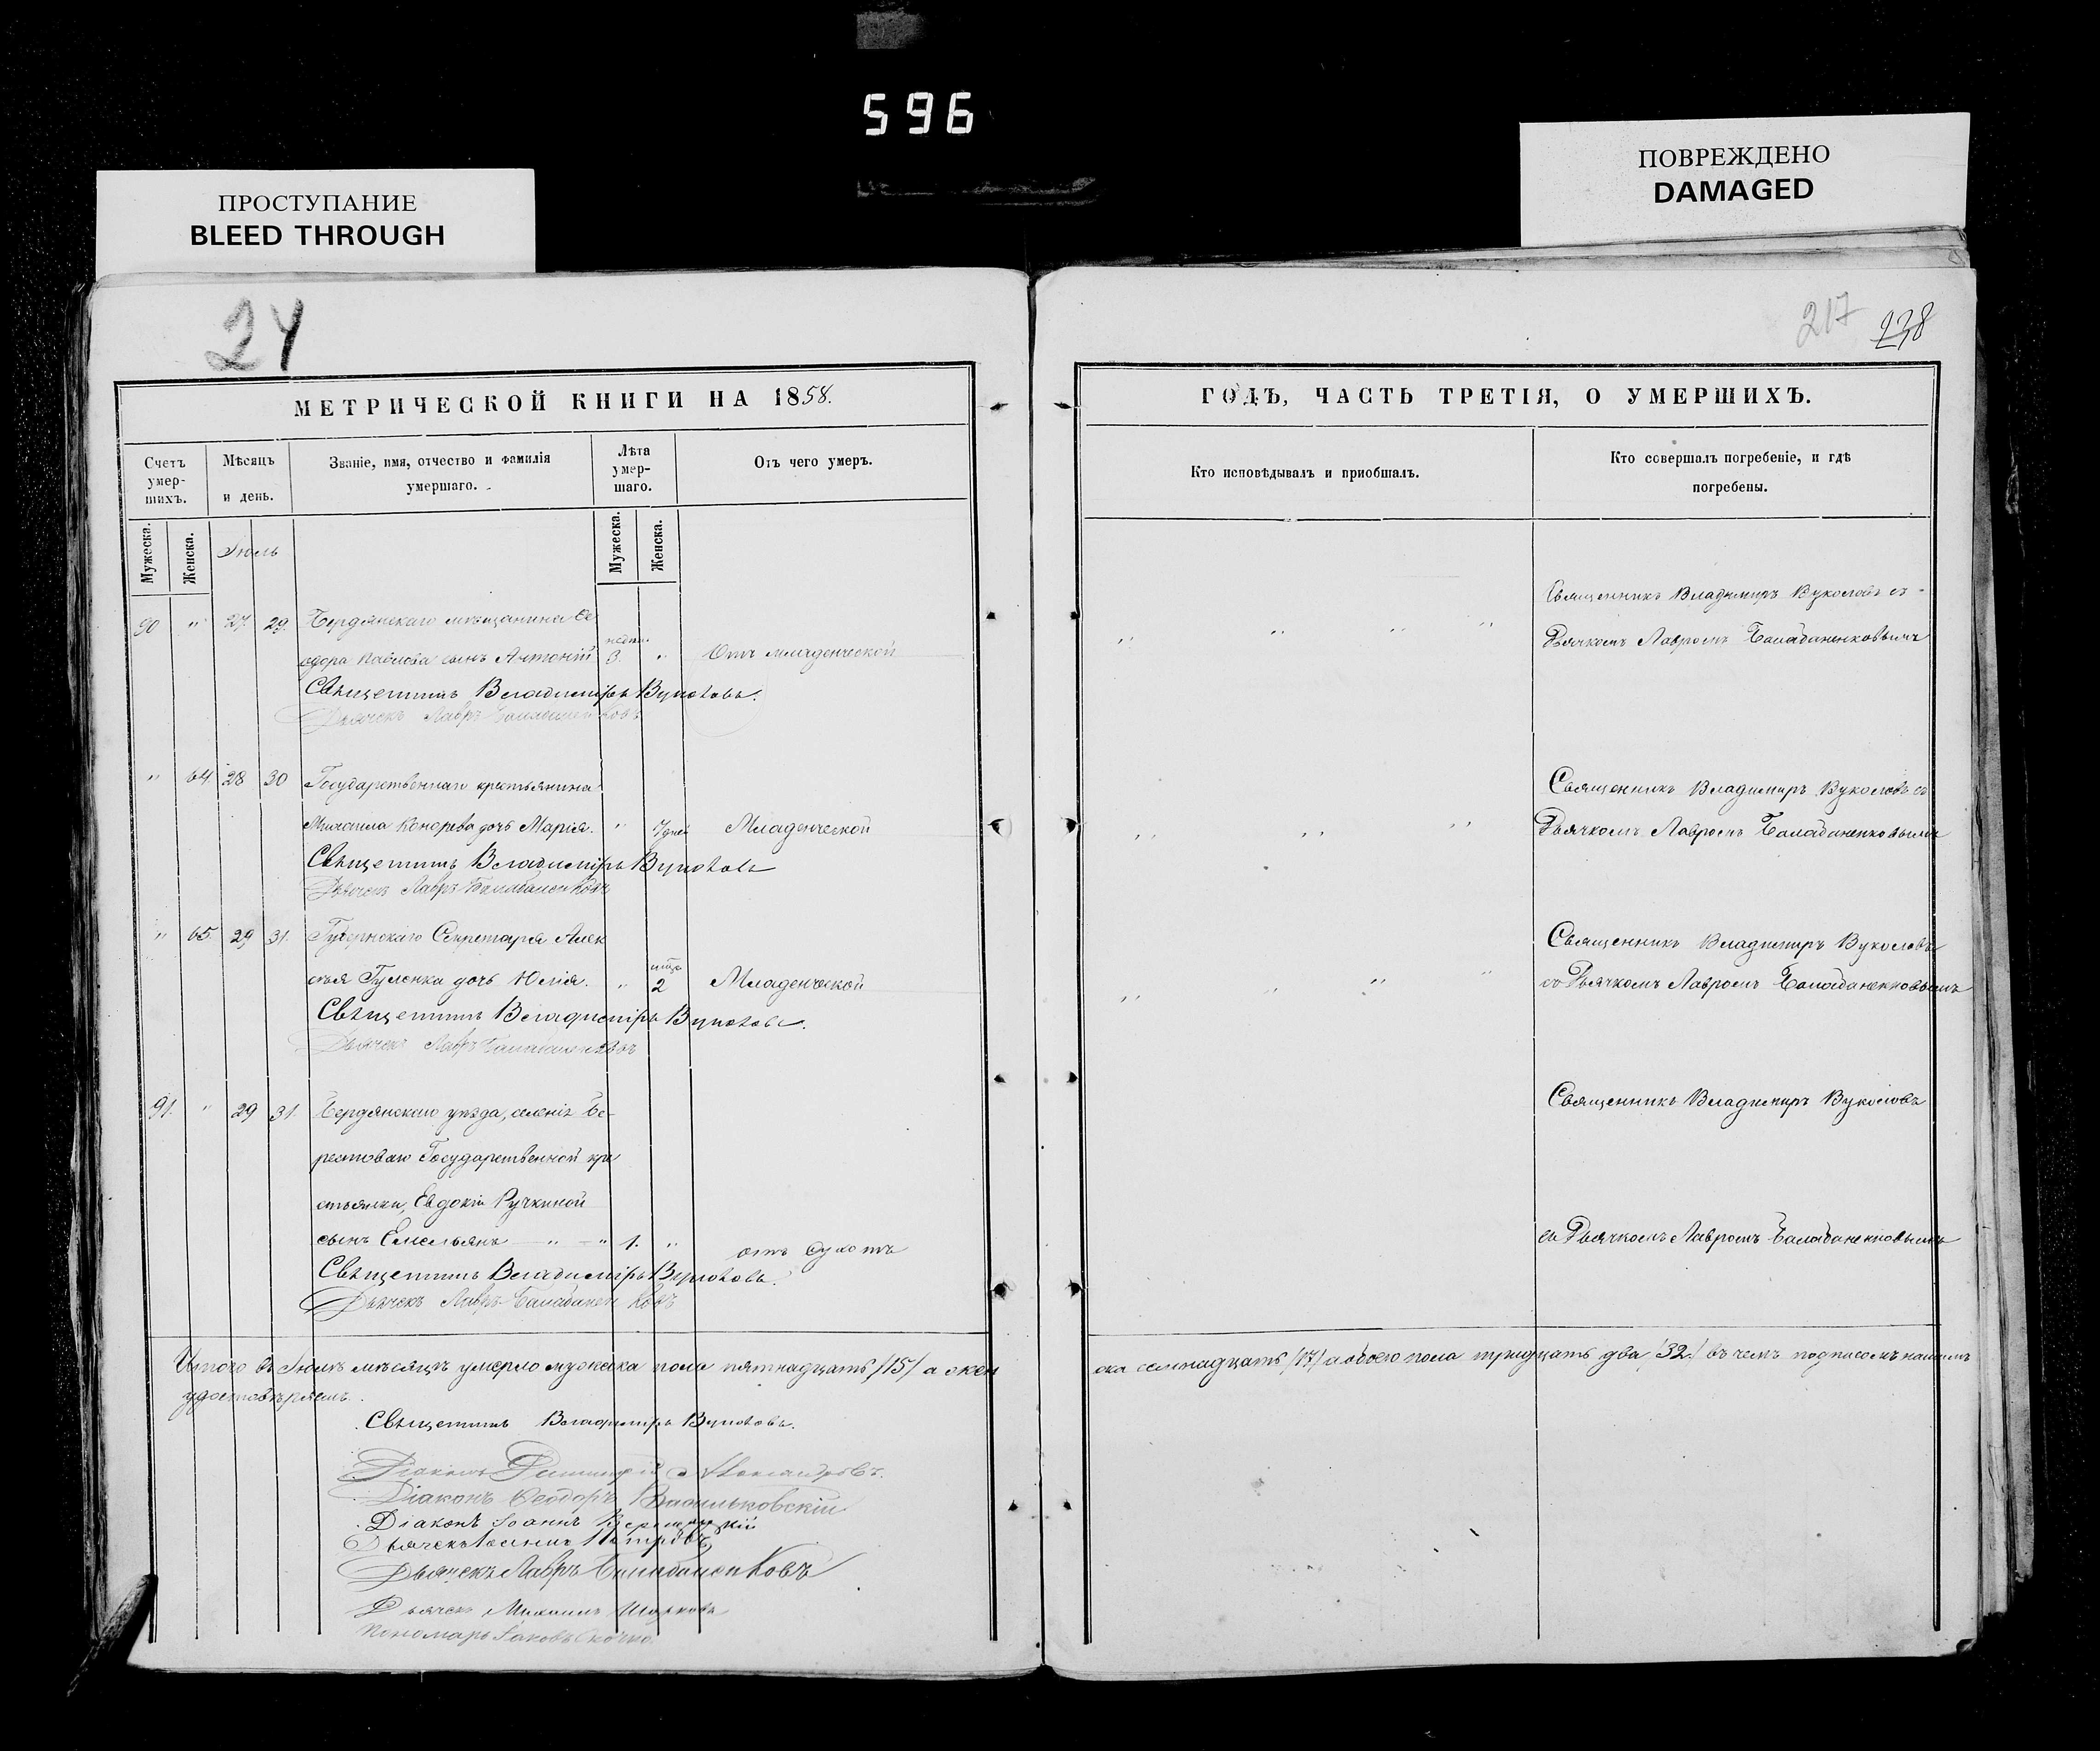 596
ПРОСТУПАНИЕ
BLEED THROUGH
ПОВРЕЖДЕНО
DAMAGED
24
217 238
МЕТРИЧЕСКОЙ КНИГИ НА 1858.
Счетъ умер-шихъ.
Мужеска.
Женска.
Мѣсяцъ и день.
Званіе, имя, отчество и фамилія умершаго.
Лѣта умер-шаго.
Мужеска.
Женска.
Отъ чего умеръ.
Іюль
90 " 27. 29. Бердянскаго мѣщанина Ѳе
одора Павлова сынъ Антоній 3. " Отъ младенческой
Священникъ Владиміръ Вуколовъ.
Дьячекъ Лавръ Балабаненковъ
" 64 28 30 Государственнаго крестьянина
Михаила Конорева дочь Марія. " 7 дней Младенческой
Священникъ Владиміръ Вуколовъ
Дьячекъ Лавръ Балабаненковъ
" 65. 29 31. Губернскаго Секретаря Алек
сѣя Гуленка дочь Юлія. " 2 Младенческой
Священникъ Владиміръ Вуколовъ.
Дьячекъ Лавръ Балабаненковъ
91. " 29 31. Бердянскаго уѣзда, селенія Бе-
рестоваго Государственной кре
стьянки, Евдокіи Ручкиной
сынъ Емельянъ " " 1. " отъ сухотъ
Священникъ Владиміръ Вуколовъ.
Дьячекъ Лавръ Балабаненковъ
Итого въ Іюлѣ мѣсяцѣ умерло мужеска пола пятнадцать /15/ а жен
удостовѣряемъ.
Священникъ Владиміръ Вуколовъ.
Діаконъ Димитрій Александровъ.
Діаконъ Ѳеодоръ Васильковскій
Діаконъ Іоаннъ
Дьячекъ Петровъ
Дьячекъ Лавръ Балабаненковъ
Дьячекъ Михаилъ
Пономарь Іаковъ
ГОДЪ, ЧАСТЬ ТРЕТІЯ, О УМЕРШИХЪ.
Кто исповѣдывалъ и пріобщалъ.
Кто совершалъ погребеніе, и гдѣ
погребены.
Священникъ Владимиръ Вуколовъ съ
" " " " Дьячкомъ Лавромъ Балабаненковымъ
Священникъ Владимиръ Вуколовъ съ
" " " Дьячкомъ Лавромъ Балабаненковымъ
Священникъ Владимиръ Вуколовъ
" " " " съ Дьячкомъ Лавромъ Балабаненковымъ
Священникъ Владимиръ Вуколовъ
съ Дьячкомъ Лавромъ Балабаненковымъ
ска семнадцать /17/ а обоего пола тридцать два /32./ въ чемъ подписомъ нашимъ